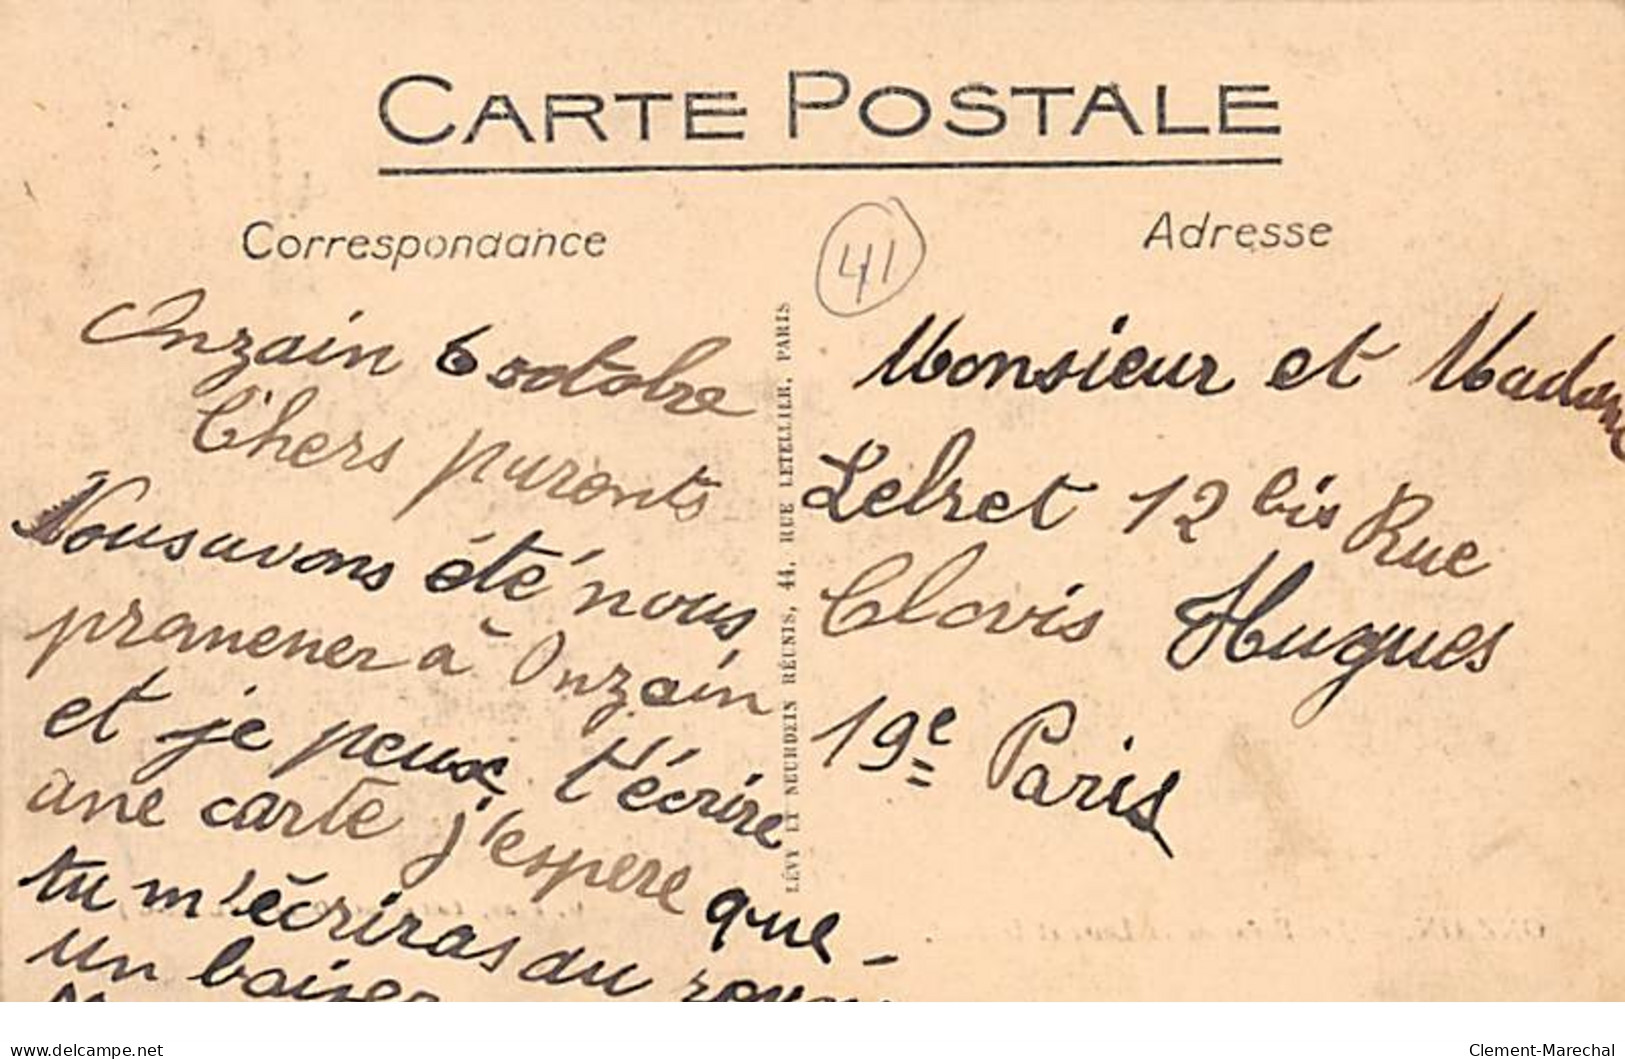 CARTE POSTALE
Correspondance
Adresse
41
Onzain 6 octobre
Chers parents
Nous avons été nous
promener à Onzain
et je peux t'écrire
une carte j'espere que
tu m'écriras du
un baiser
LÉVY ET NEURDEIN RÉUNIS, 44, RUE LETELLIER, PARIS
Monsieur et Madame
Lebret 12 bis Rue
Clovis Hugues
19e Paris
delcampe.net
Clement-Marechal